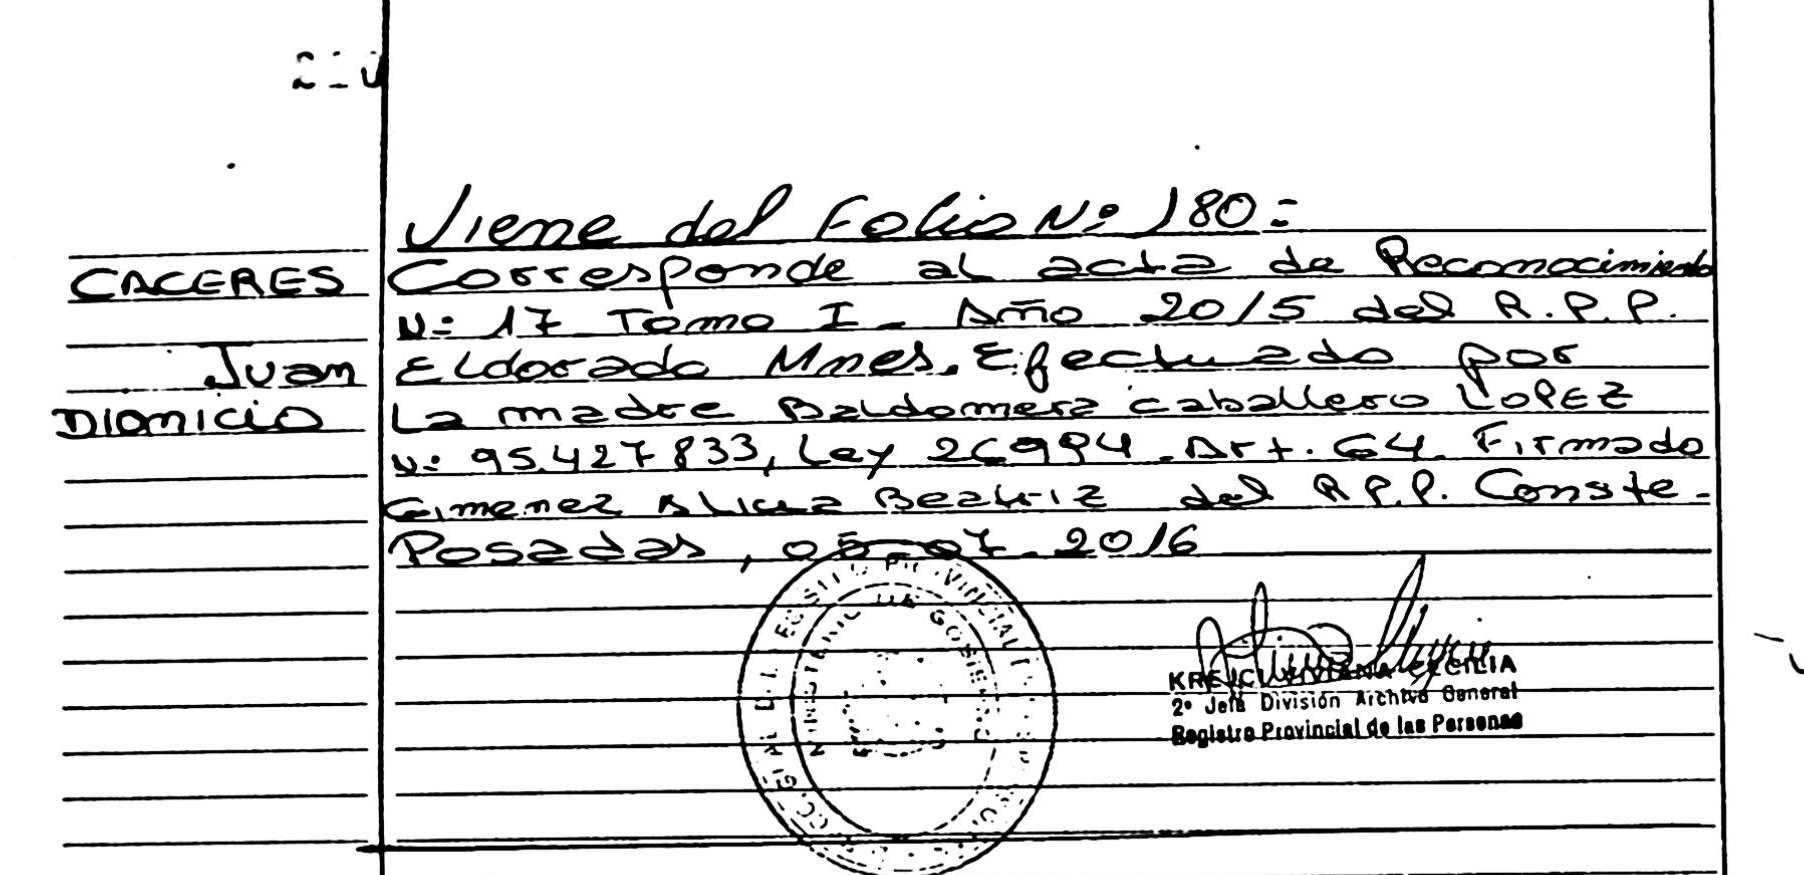 Viene del Folio Nº 180=
CACERES
Juan
Dionicio
Corresponde al acta de Reconocimiento
Nº 17 Tomo I - Año 2015 del R.P.P.
Eldorado Mnes. Efectuado por
La madre Baldomera Caballero LOPEZ
Nº 95.427833, Ley 26994. Art. 64. Firmado
Gimenez Alicia Beatriz del R.P.P. Conste-
Posadas, 05-07-2016
VIVIANA CECILIA
2º Jefa División Archivo General
Registro Provincial de las Personas